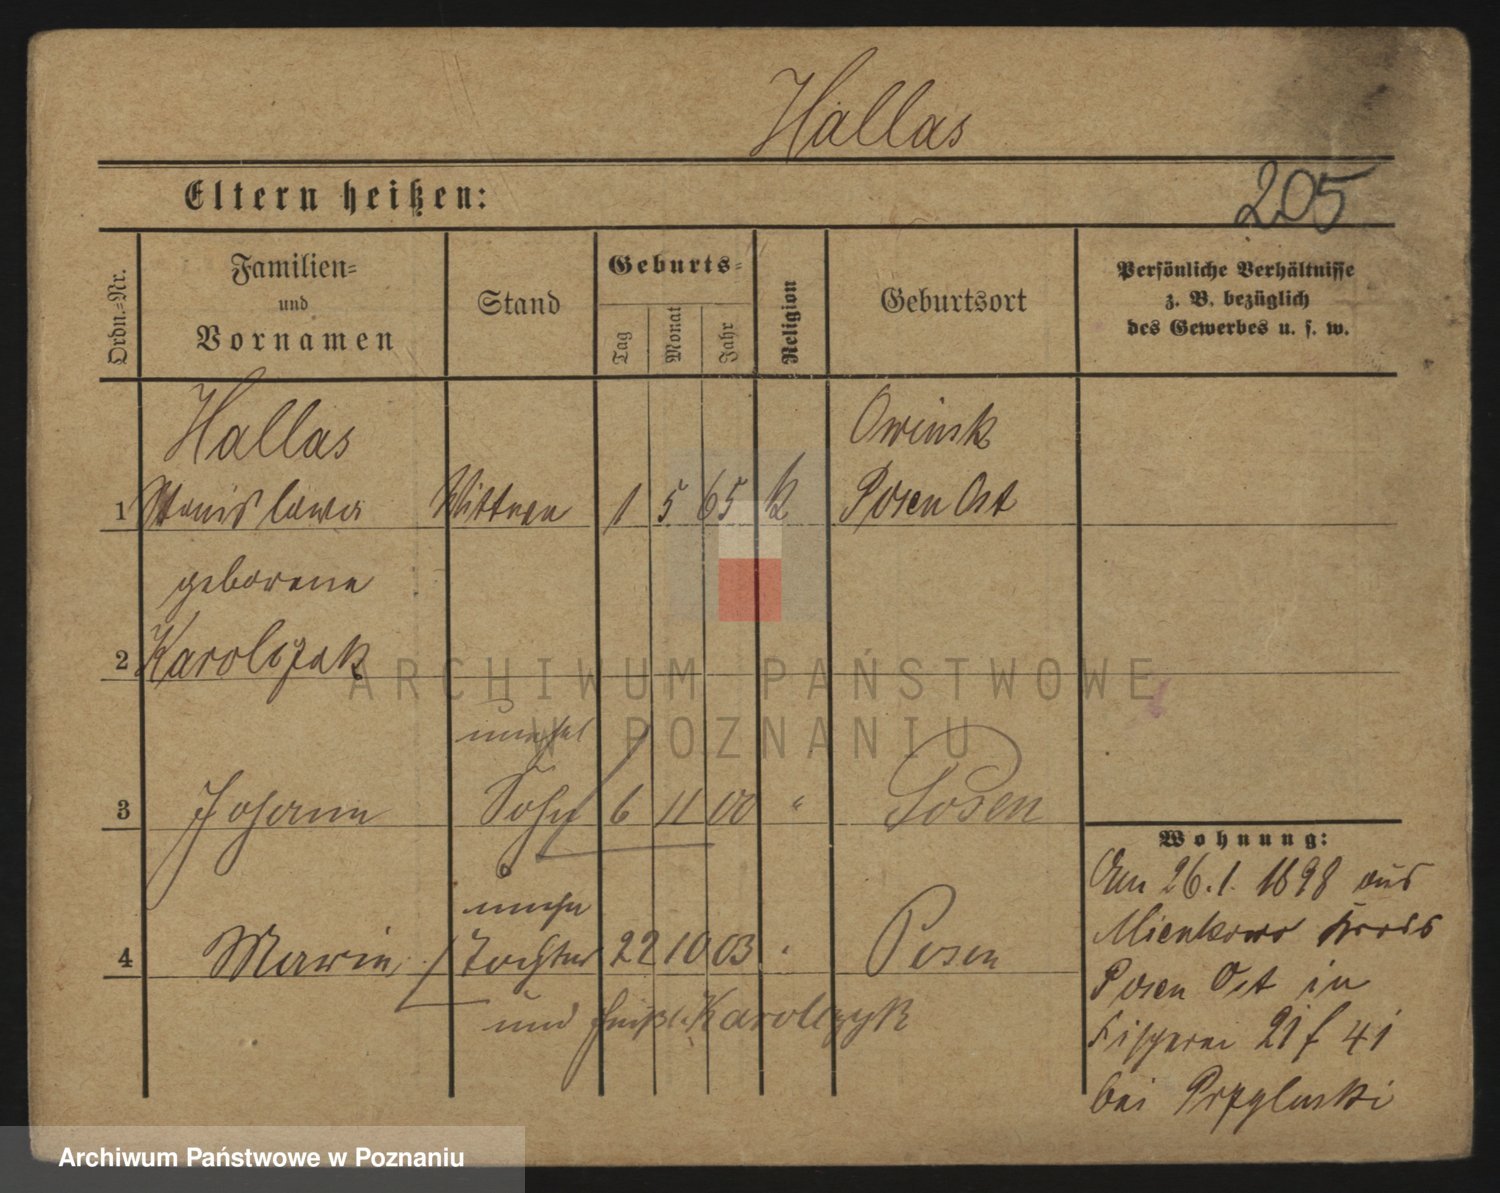 Hallas
Eltern heißen:
205
Ordn.-Nr.
Familien-
und
Vornamen
Stand
Geburts-
Tag
Monat
Jahr
Religion
Geburtsort
Persönliche Verhältnisse
z. B. bezüglich
des Gewerbes u. s. w.
Hallas
Owinsk
1 Stanislawa Wittwe 1 5 65 k Posen Ost
geborene
2 Karolczak
unehel
3 Johann Sohn 6 11 00 " Posen
Wohnung:
Am 26.1. 1898 aus
unehe
Mienkowo Kreis
4 Marie Tochter 22 10 03 " Posen
Posen Ost in
und heißt Karolczyk
Fischerei 21 f 41
bei
ARCHIWUM PAŃSTWOWE
W POZNANIU
Archiwum Państwowe w Poznaniu